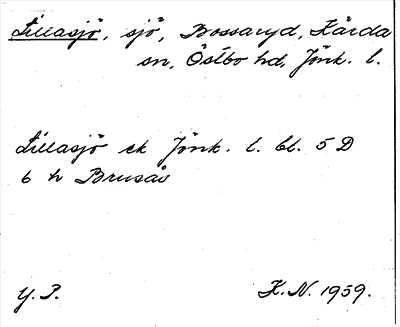 Lillasjö, sjö, Bossaryd, Kärda
sn, Östbo hd, Jönk. l.
Lillasjö ek Jönk. l. bl. 5 D
6 h Brusås
Y. P.
K. N. 1959.